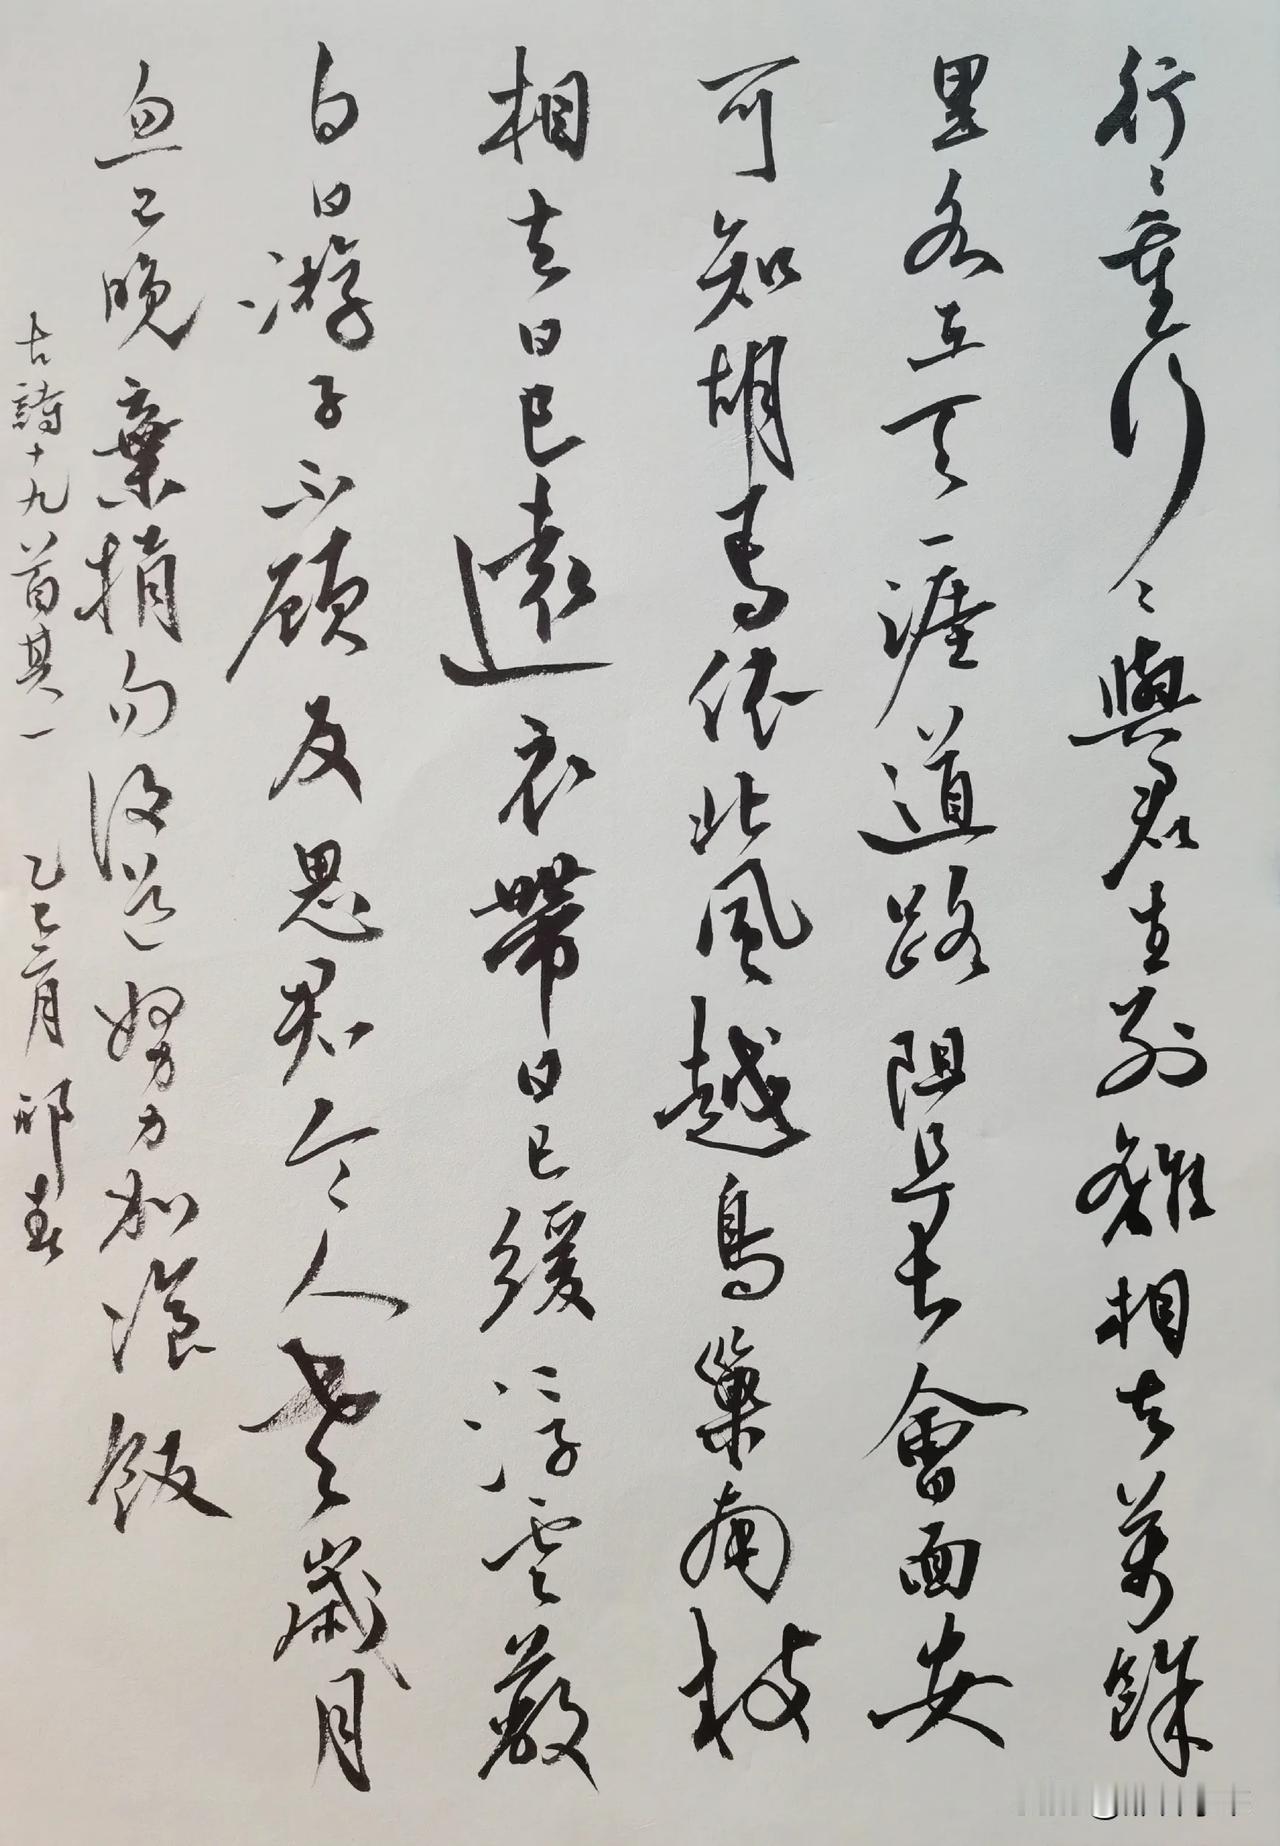 行〻重行〻與君生別離相去萬餘
里各在天一涯道路阻且長會面安
可知胡馬依北風越鳥巢南枝
相去日已遠衣帶日已緩浮雲蔽
白日游子不顧反思君令人老歲月
忽已晚棄捐勿復道努力加飡飯
古詩十九首其一 乙巳二月 祁春